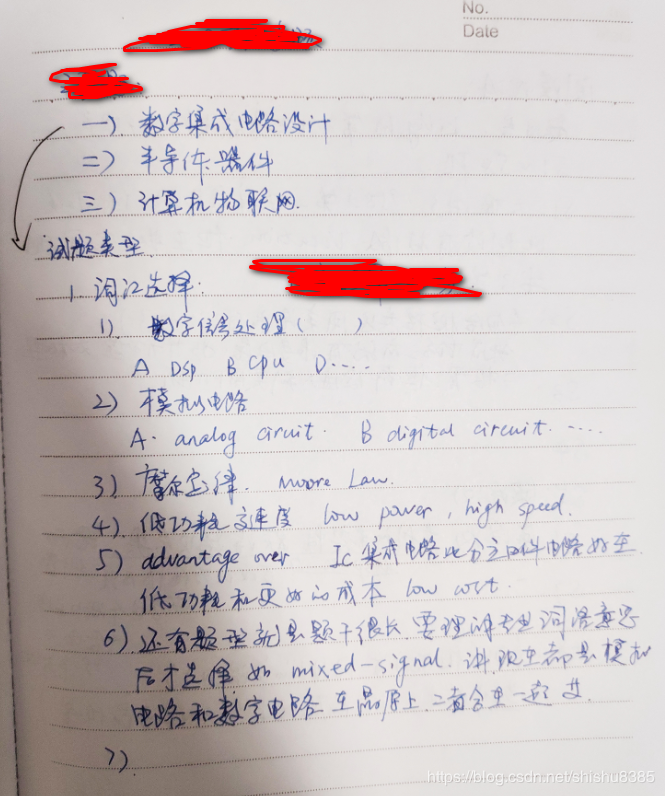 No.
Date
一) 数字集成电路设计
二) 半导体器件
三) 计算机物联网.
试题类型
1. 词汇选择:
1) 数字信号处理 ( )
A DSP B CPU D....
2) 模拟电路
A. analog ciruit. B digital circuit. ....
3) 摩尔定律. Moore Law.
4) 低功耗高速度 low power, high speed.
5) addvantage over Ic 集成电路比分立器件电路好在
低功耗和更好的成本 low cost.
6) 还有题型就是题干很长, 要理解专业词语意思
后才选择 如 mixed-signal. 讲现在都是模拟
电路和数字电路在晶片上. 二者合在一起
7)
https://blog.csdn.net/shishu8385